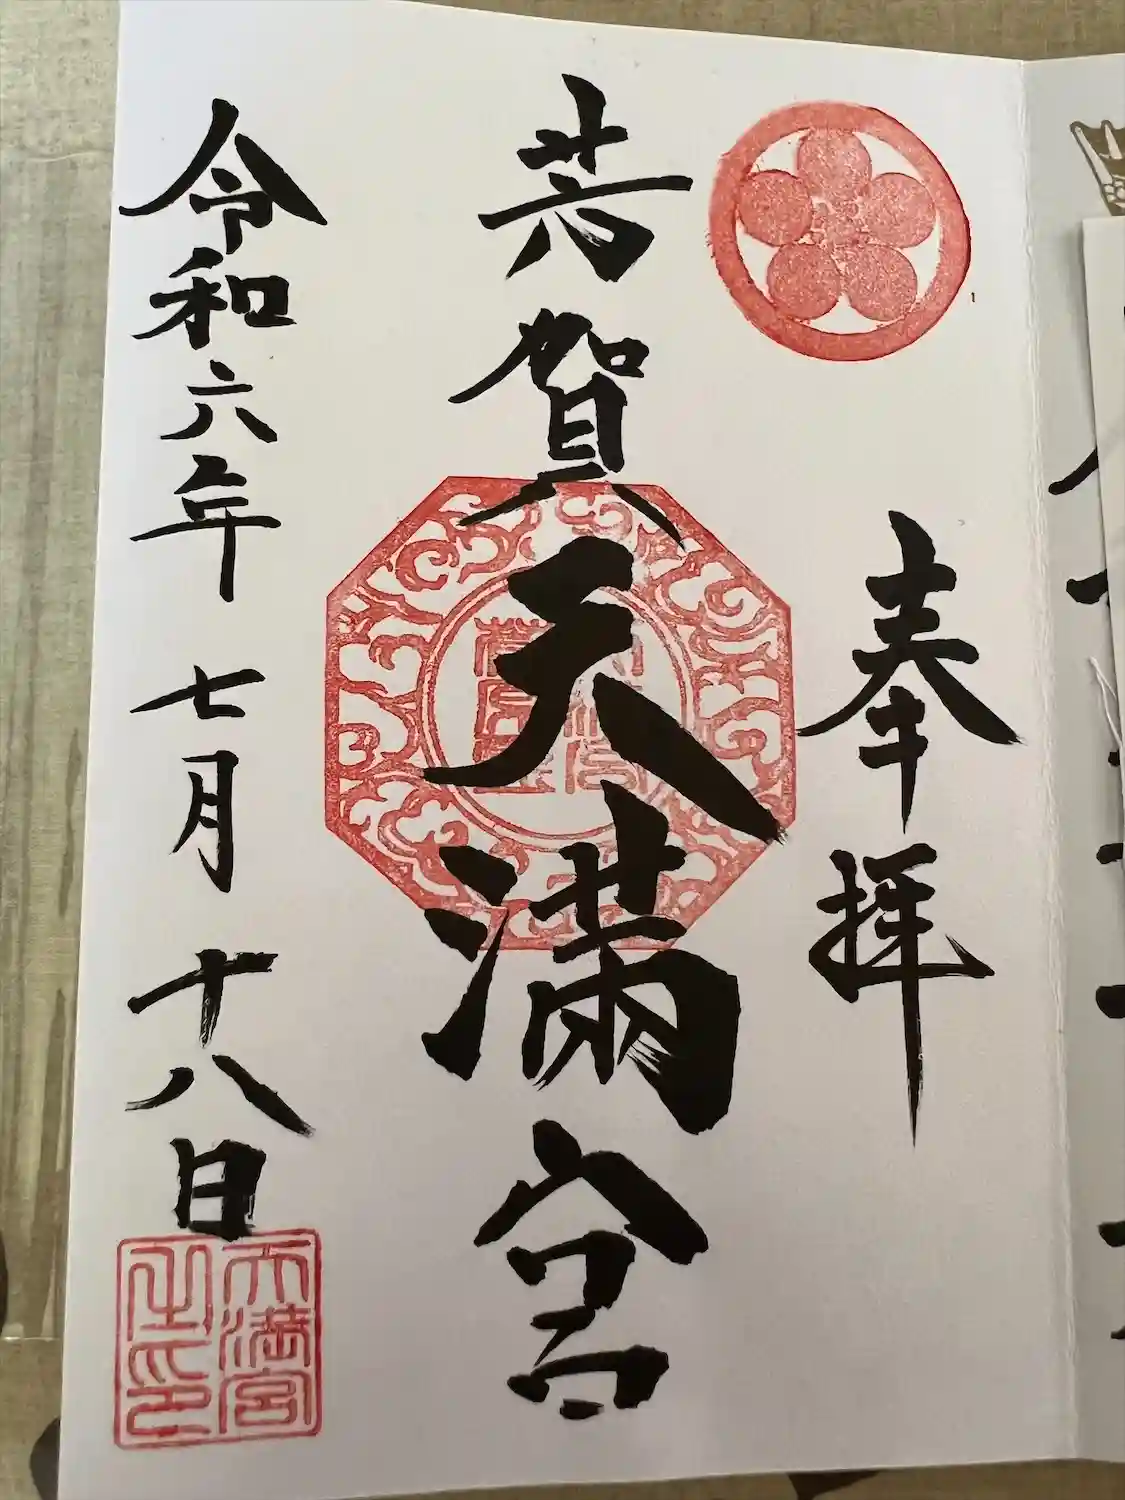 奉拝
芳賀天満宮
令和六年七月十八日
天満宮
之印